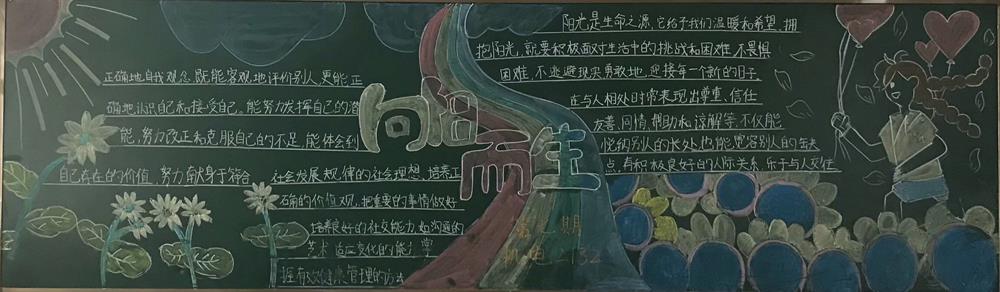 正确地自我观念，既能客观地评价别人，更能正
确地认识自己和接受自己。能努力发挥自己的潜
能，努力改正和克服自己的不足，能体会到
自己存在的价值，努力献身于符合
社会发展规律的社会理想，培养正
确的价值观，把重要的事情做好
培养良好的社交能力，如沟通的
艺术，适应变化的能力，学
握有效健康管理的方法
向阳而生
第七期
机电 132
阳光是生命之源，它给予我们温暖和希望，拥
抱阳光，就要积极面对生活中的挑战和困难，不畏惧
困难，不逃避现实勇敢地，迎接每一个新的日子。
在与人相处时常表现出尊重、信任
友善、同情、帮助和谅解等，不仅能
悦纳别人的长处，也能宽容别人的缺
点，有积极良好的人际关系，乐于与人交往